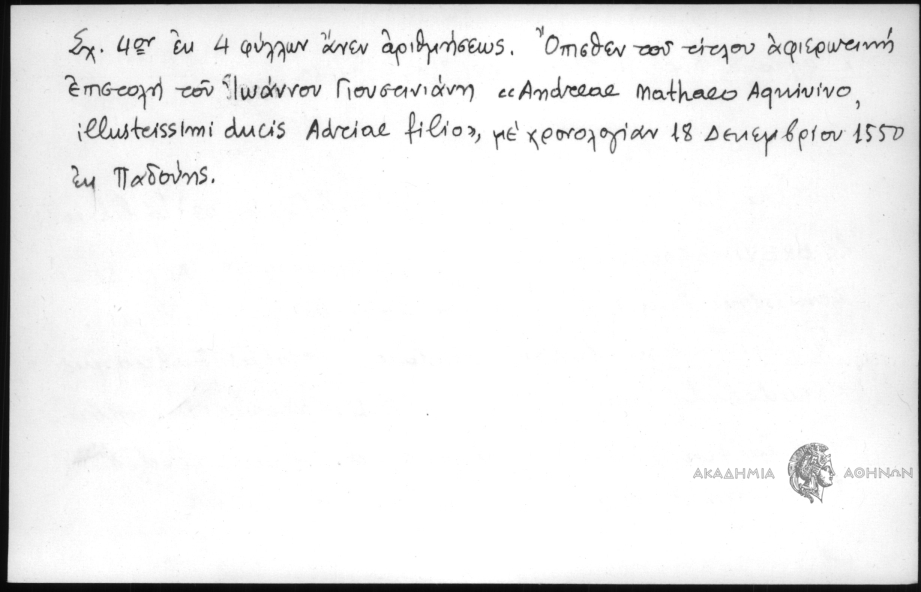 Σχ. 4ον ἐκ 4 φύλλων ἄνευ ἀριθμήσεως. Ὄπισθεν τοῦ τίτλου ἀφιερωτική
ἐπιστολή τοῦ Ἰωάννου Γιουστινιάνη «Andreae Mathaeo Aquivivo,
illustrissimi ducis Adriae filio», μέ χρονολογίαν 18 Δεκεμβρίου 1550
ἐκ Παδούης.
ΑΚΑΔΗΜΙΑ ΑΘΗΝΩΝ